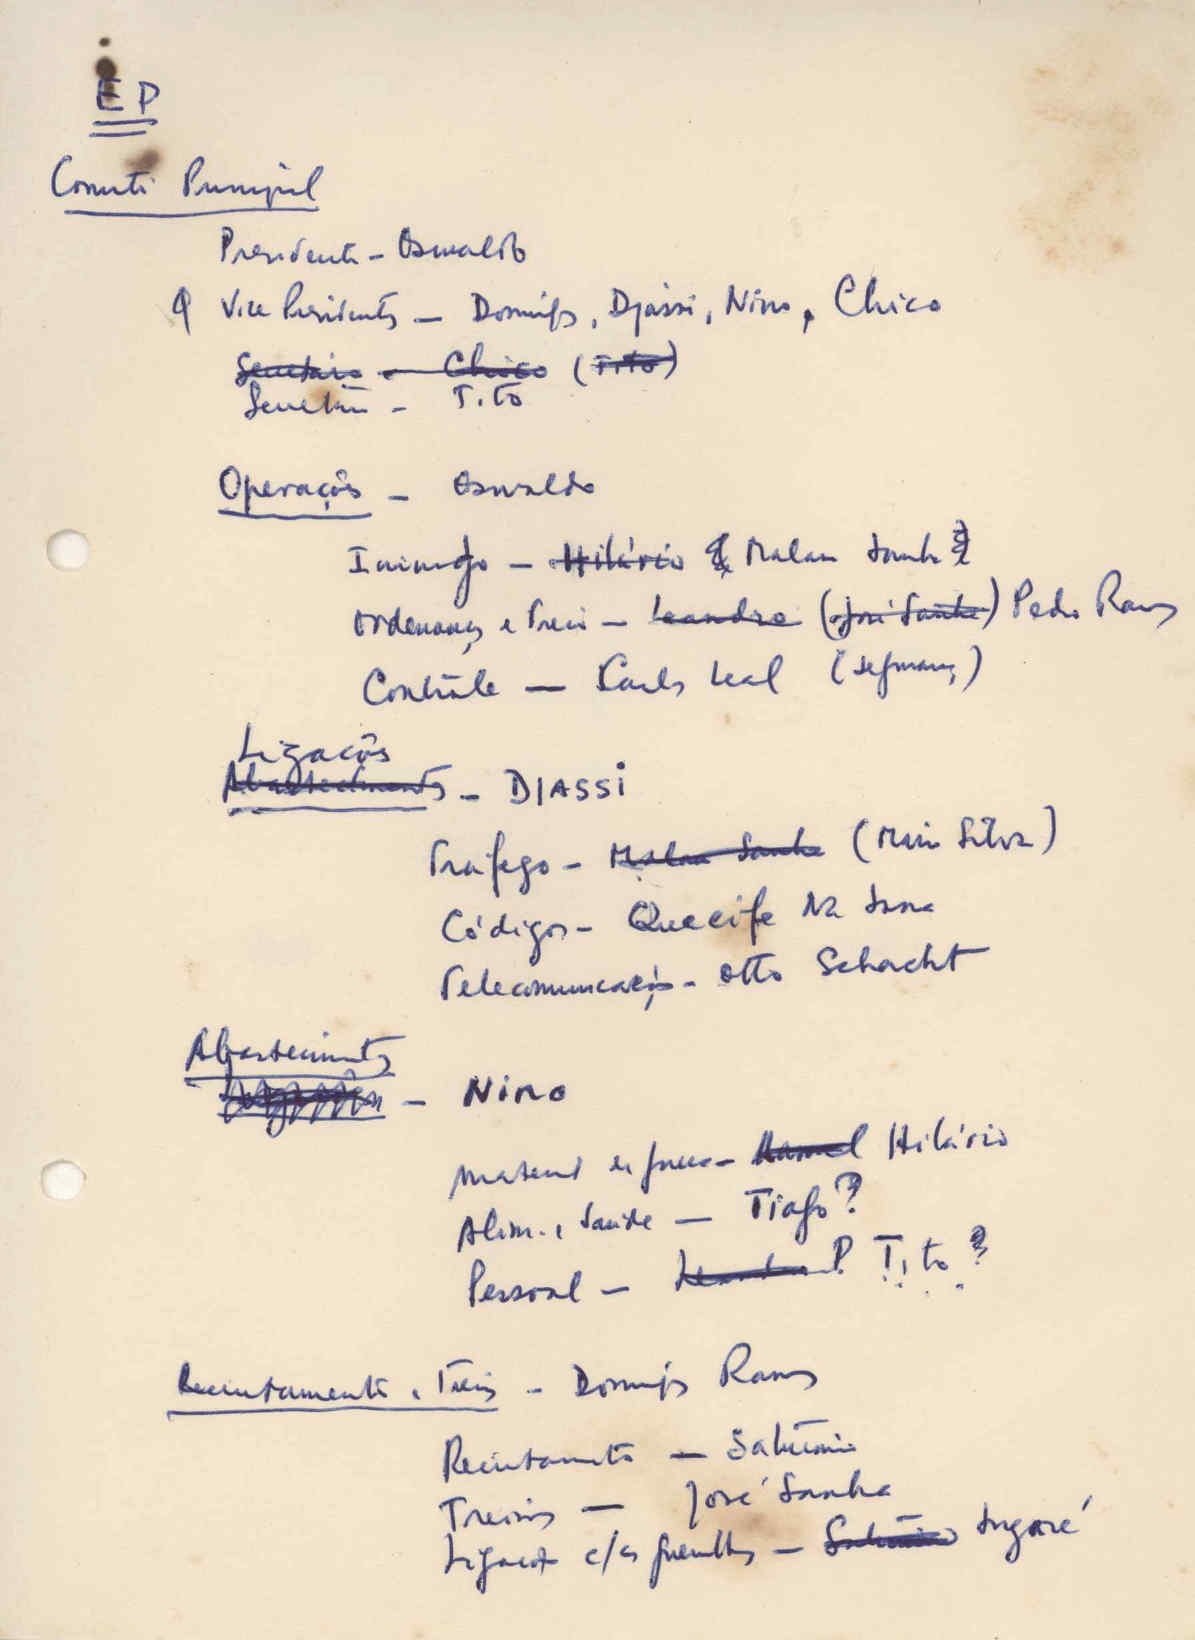 EP
Comité Principal
Presidente - Oswaldo
Vice Presidentes - Domingos, Djassi, Nino, Chico
Secretário - Chico (Tito)
Secretário - Tito
Operações - Oswaldo
Inimigo - Hilário Malan Sanha
Ordenança e Treino - Leandro (José Sanha) Pedro Ramos
Contrôle - Carlos Leal (segurança)
Ligações
Abastecimentos - DJASSI
Tráfego - Malan Sanha (Mário Silva)
Códigos - Quecife Na
Telecomunicações - Otto Schacht
Abastecimentos
- Nino
Material de guerra - Manuel Hilário
Alim. e Saúde - Tiago?
Pessoal - Leandro P. Tito?
Recrutamento e Treino - Domingos Ramos
Recrutamento - Saturnino
Treinos - José Sanha
Ligação c/as guerrilhas - Saturnino Ingaré